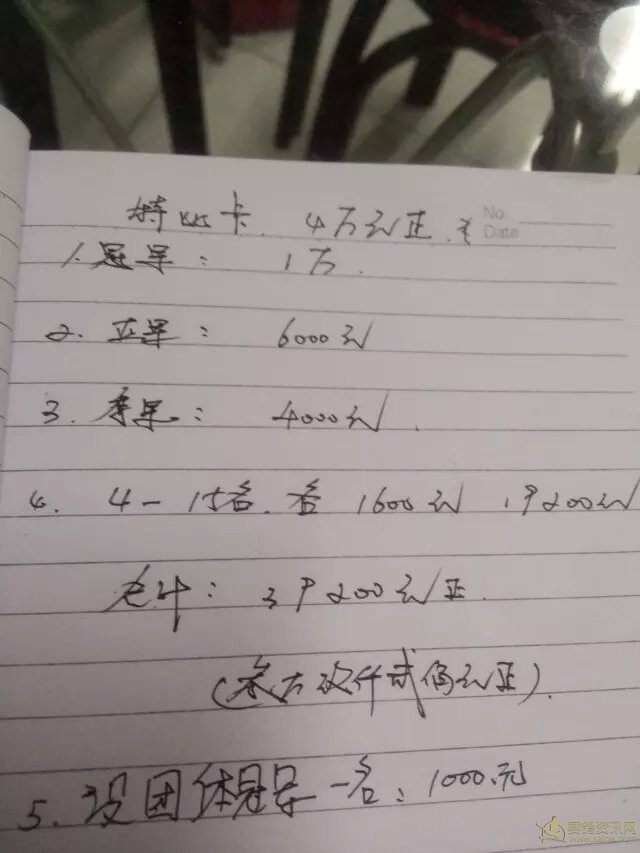 特比卡. 4万元正.
No
Date
1.冠军: 1万.
2.亚军: 6000元
3.季军: 4000元.
4. 4-15名.各 1600元 19200元
总计: 39200元正.
(叁万玖仟贰佰元正).
5.设团体冠军一名: 1000.元
赛鸽资讯网